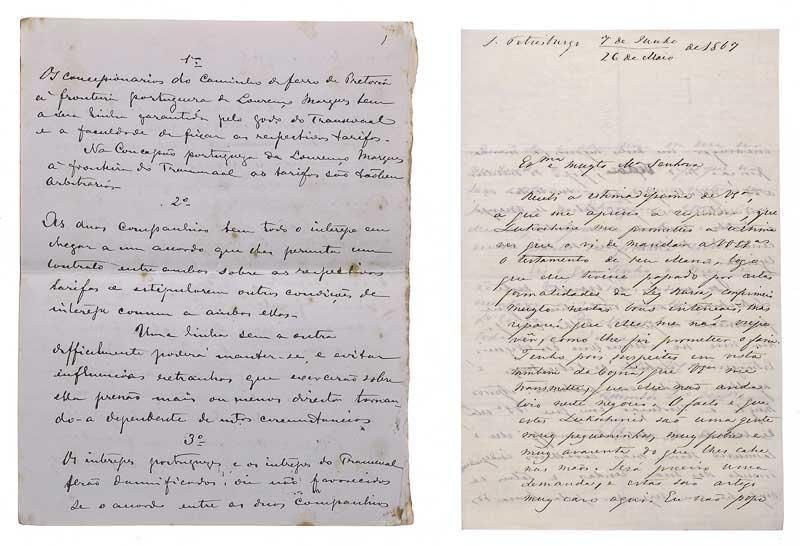 1
1º
Os concepionarios do Caminho de ferro de Pretoria
á fronteira portugueza de Lourenço Marques tem
a sua linha garantida pelo govº do Transvaal
e a faculdade de fixar as respectivas tarifas.
Na Concepção portugueza de Lourenço Marques
á fronteira do Transvaal as tarifas são tambem
arbitrarias.
2º
As duas Companhias tem todo o interepe em
chegar a um accordo que lhes permitta um
contrato entre ambas sobre as respectivas
tarifas e estipularem outras condições de
interepe comum a ambas ellas.
Uma linha sem a outra
difficilmente poderá manter-se, e evitar
influencias estranhas que exercerão sobre
ella pressão mais ou menos directa tornan-
do-a dependente de certas circumstancias.
3º
Os interepes portuguezes e os interepes do Transvaal
serão damnificados, ou não favorecidos
se o accordo entre as duas Companhias
S. Petersburgo 7 de Junho de 1867
26 de Maio
Exma e Muyto Senhora
Recebi a estimadipima de Vª,
a que me apreso a responder que
me prometteu a ultima
vez que o vi de mandar a
o testamento de seu logo
que elle tivese papado por certas
formalidades da
muyto nestas boas intenções, mas
reparei que elle me não
como lhe fiz prometter o
Tenho pois suspeitas em vista
tambem da Copia, que me
transmitte, que elle não anda
lizo neste negocio. O facto é que
estes são uma gente
muy pequeninha, muy pobre e
muy avarenta do que lhes cahe
nas mãos. Será preciso uma
demanda, e estas são artigo
muy caro aqui. Eu não popo